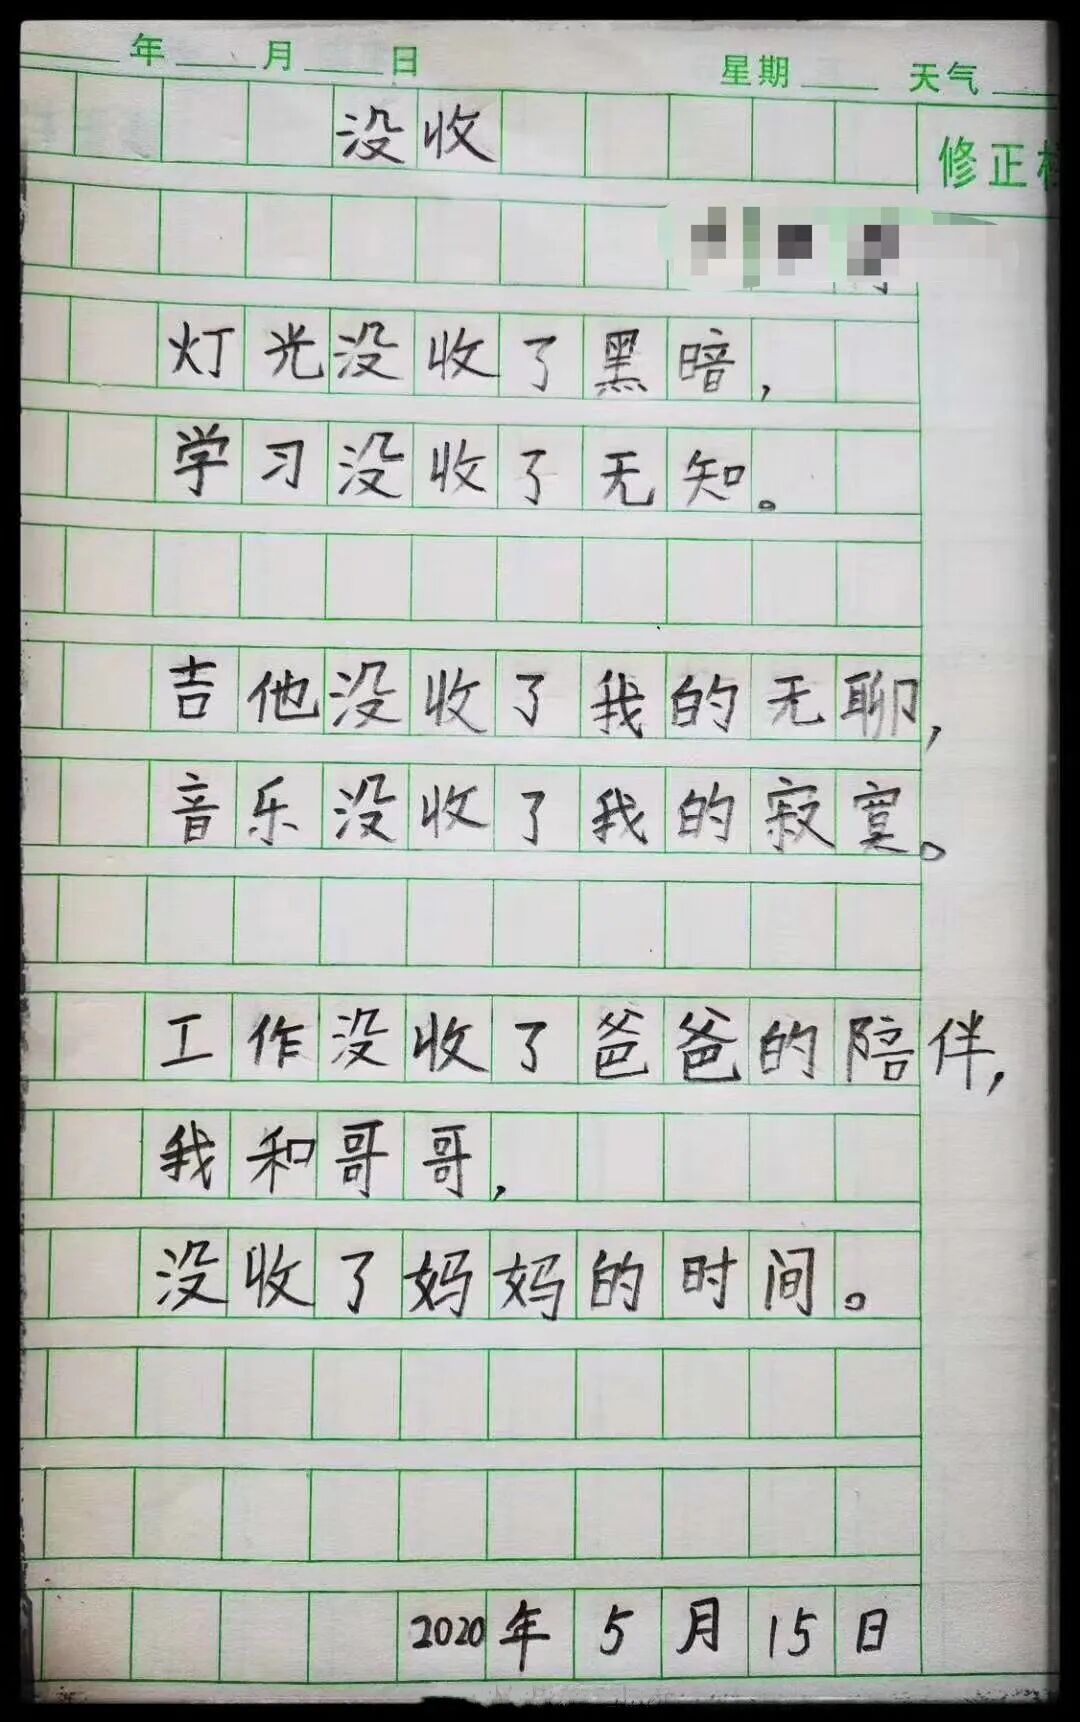 年 月 日 星期 天气
没收
修正
灯光没收了黑暗，
学习没收了无知。
吉他没收了我的无聊，
音乐没收了我的寂寞。
工作没收了爸爸的陪伴，
我和哥哥，
没收了妈妈的时间。
2020年5月15日